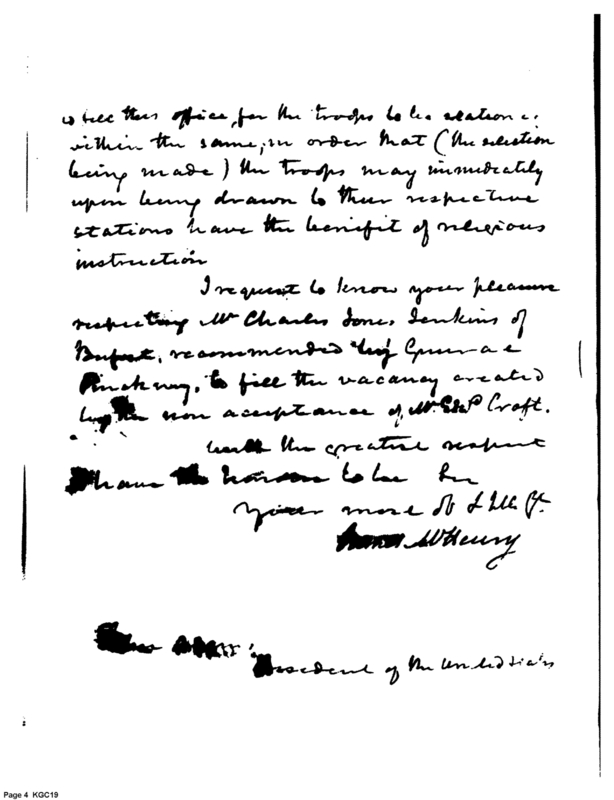 to fill this office, for the troops to be stationed
within the same; in order that (the selection
being made) the troops may immediately
upon being drawn to their respective
stations have the benefit of religious
instruction
I request to know your pleasure
respecting Mr Charles Jones Jenkins of
Beaufort, recommended by General
Pinckney, to fill the vacancy created
by the non acceptance of Mr Edwd Croft.
with the greatest respect
I have the honor to be Sir
your most ob &
James McHenry
President of the United States
Page 4 KGC19